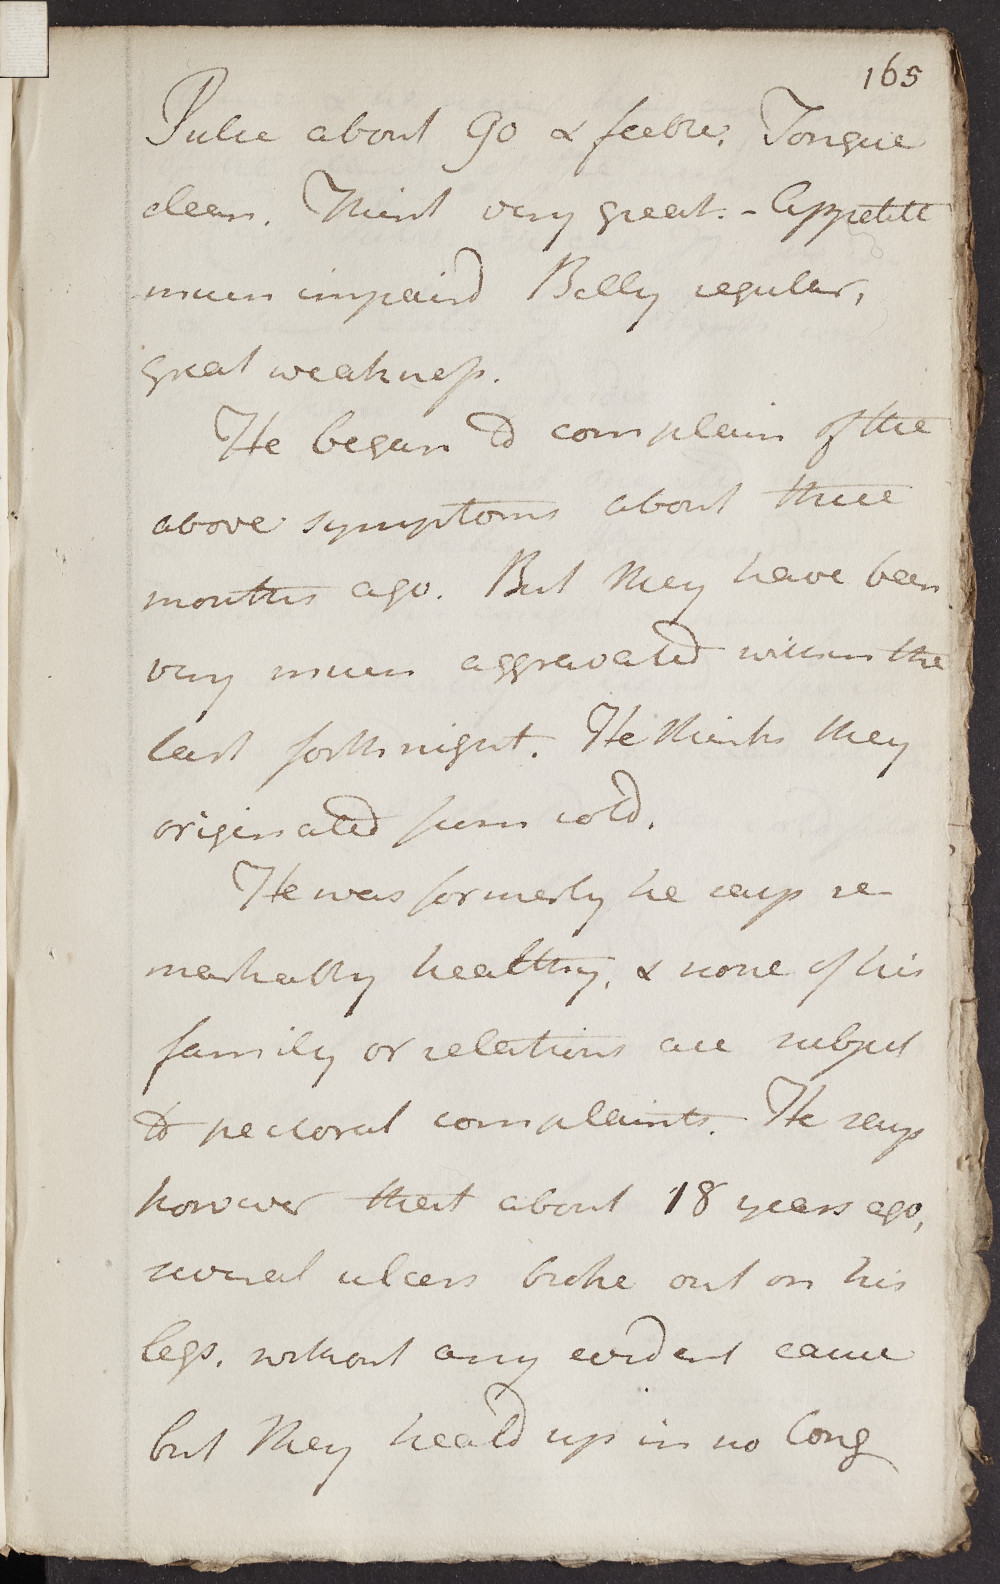 165
Pulse about 90 & feeble. Tongue
clean. Thirst very great. - Appetite
much impaird Belly regular,
great weakness.
He began to complain of the
above symptoms about three
months ago. But they have been
very much aggravated within the
last forthnight. He thinks they
originated from cold.
He was formerly he says re-
markably healthy, & none of his
family or relations are subject
to pectoral complaints. He says
however that about 18 years ago,
several ulcers broke out on his
legs. without any evident cause
but they heald up in no long